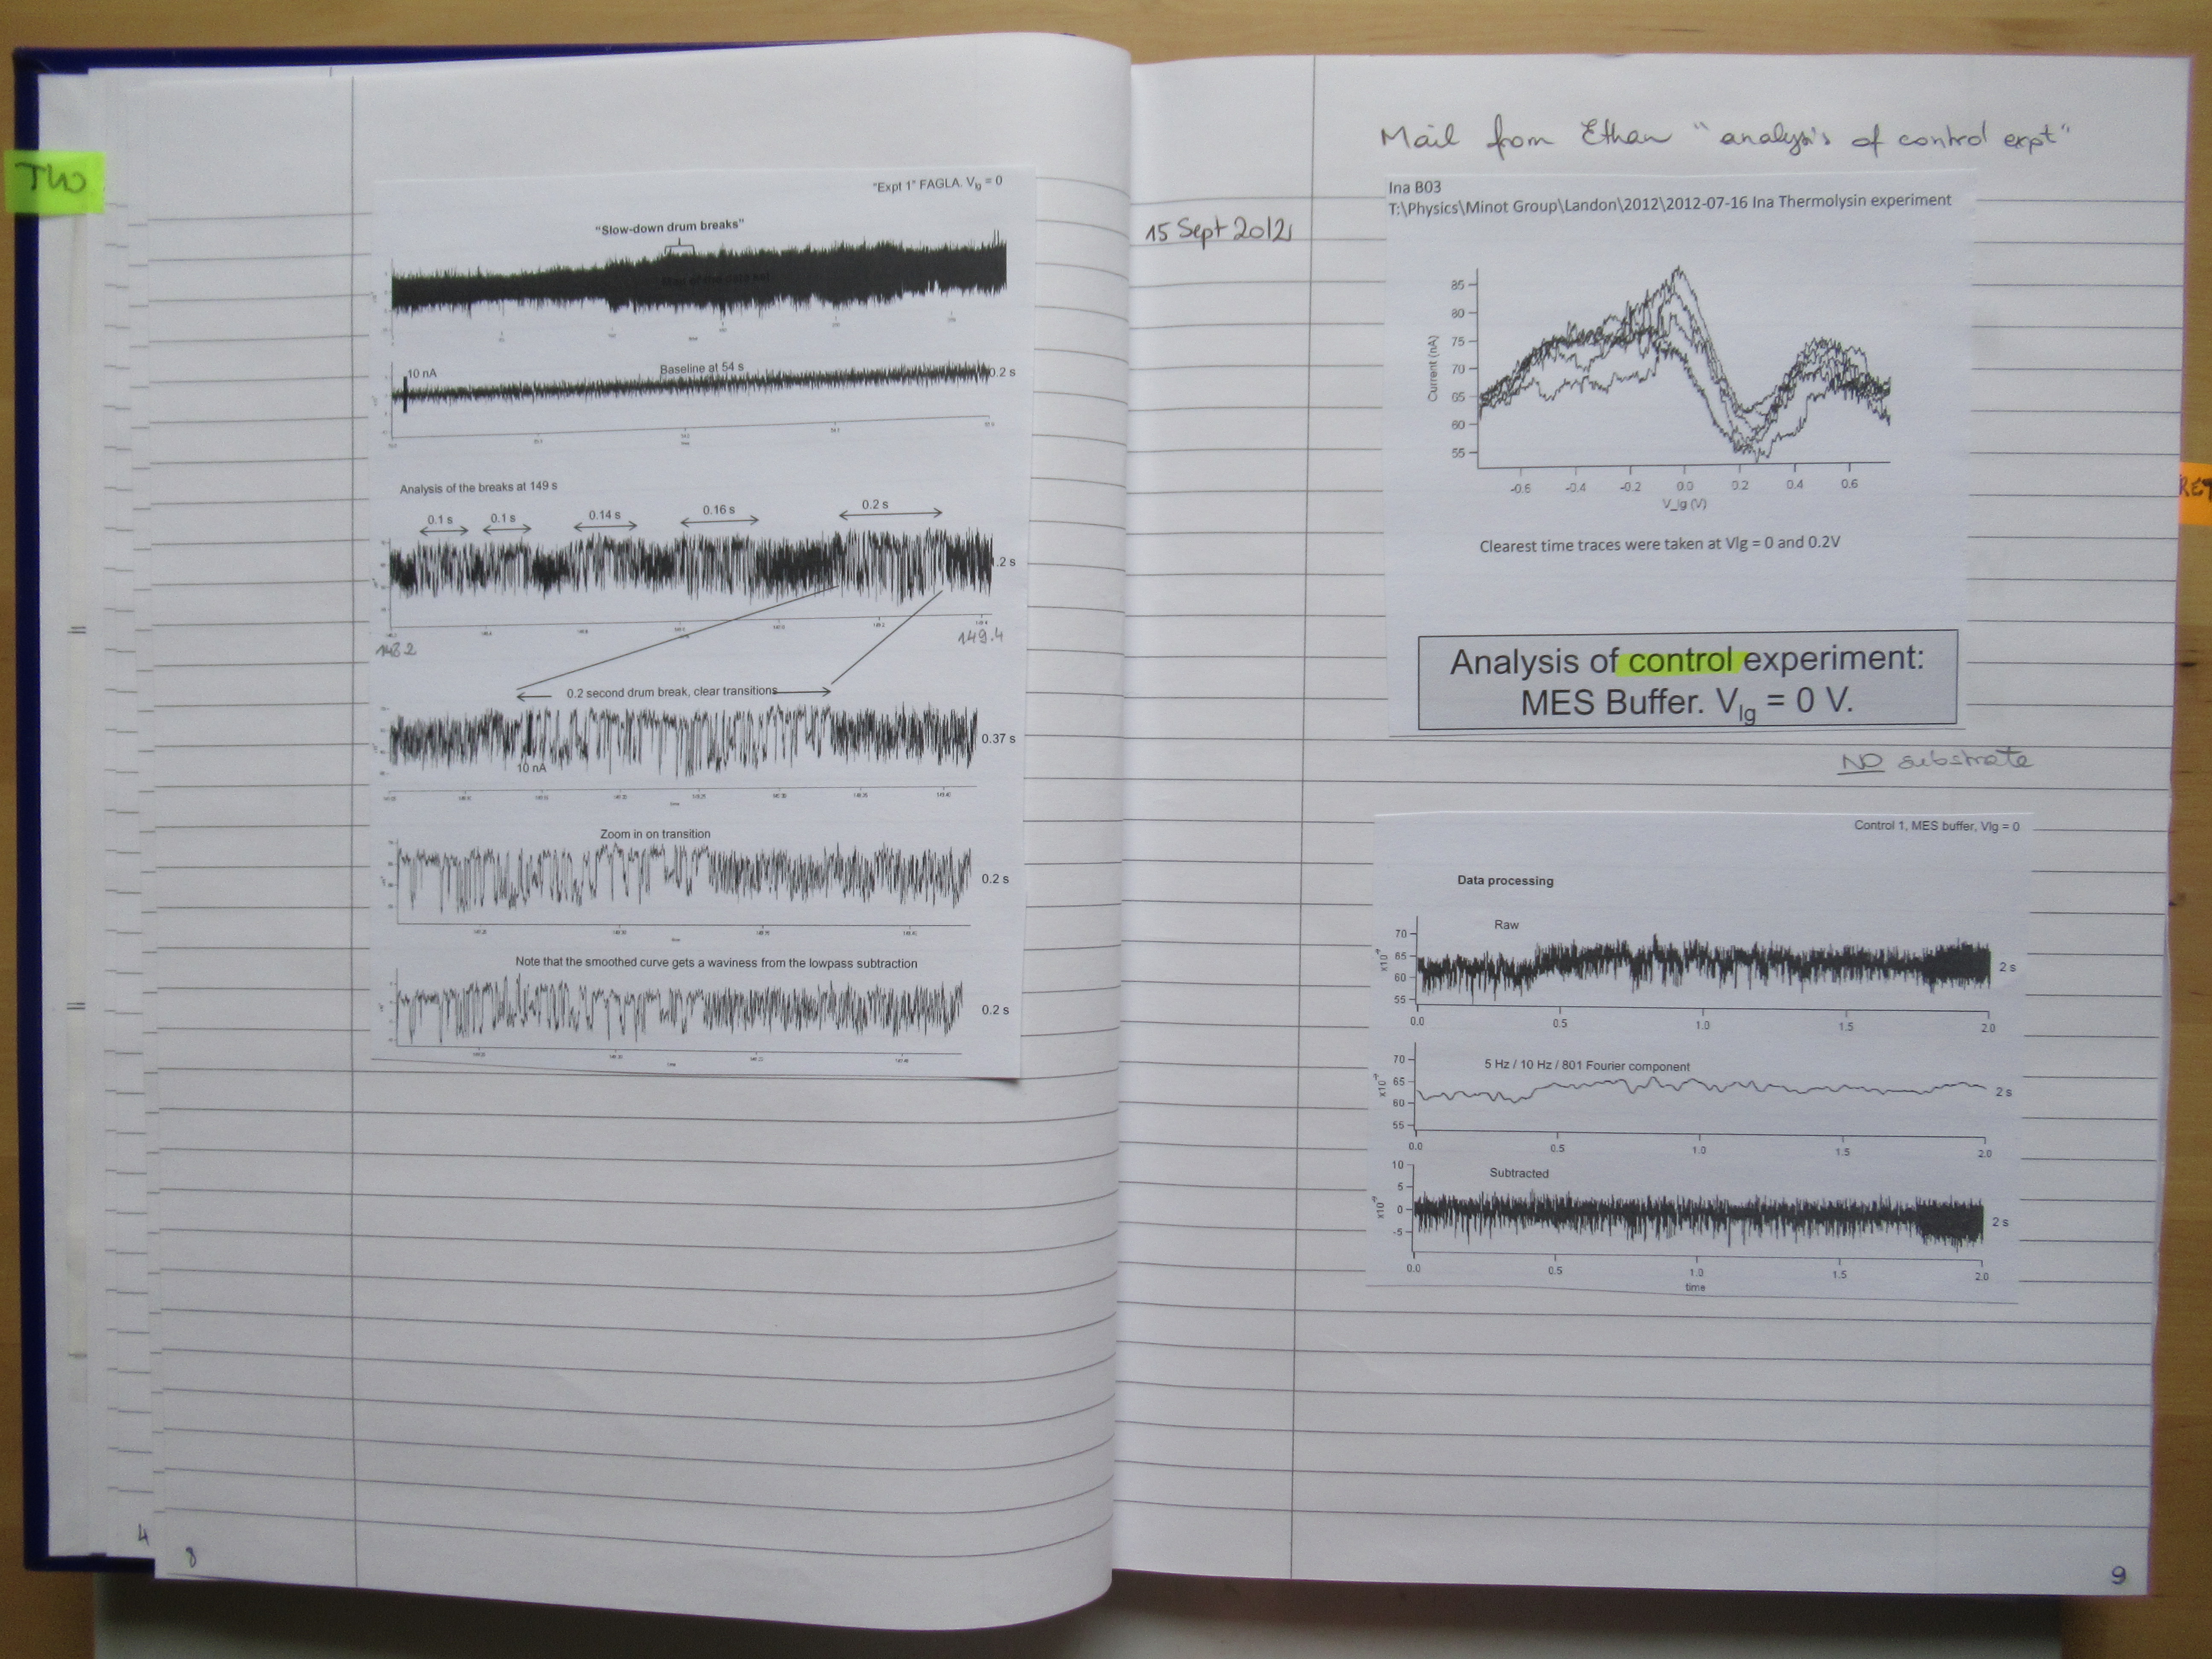 TWO
"Expt 1" FAGLA. Vlg = 0
"Slow-down drum breaks"
Map of the data set
10 nA
Baseline at 54 s
0.2 s
Analysis of the breaks at 149 s
0.1 s
0.1 s
0.14 s
0.16 s
0.2 s
.2 s
148.2
149.4
0.2 second drum break, clear transitions
10 nA
0.37 s
Zoom in on transition
0.2 s
Note that the smoothed curve gets a waviness from the lowpass subtraction
0.2 s
4
8
Mail from Ethan "analysis of control expt"
15 Sept 2012
Ina B03
T:\Physics\Minot Group\Landon\2012\2012-07-16 Ina Thermolysin experiment
Current (nA)
85
80
75
70
65
60
55
-0.6 -0.4 -0.2 0.0 0.2 0.4 0.6
V_lg (V)
Clearest time traces were taken at Vlg = 0 and 0.2V
Analysis of control experiment:
MES Buffer. Vlg = 0 V.
NO substrate
Control 1, MES buffer, Vlg = 0
Data processing
Raw
x10⁻⁹
70
65
60
55
2 s
0.0 0.5 1.0 1.5 2.0
5 Hz / 10 Hz / 801 Fourier component
x10⁻⁹
70
65
60
55
2 s
0.0 0.5 1.0 1.5 2.0
Subtracted
x10⁻⁹
10
5
0
-5
2 s
0.0 0.5 1.0 1.5 2.0
time
9
RET